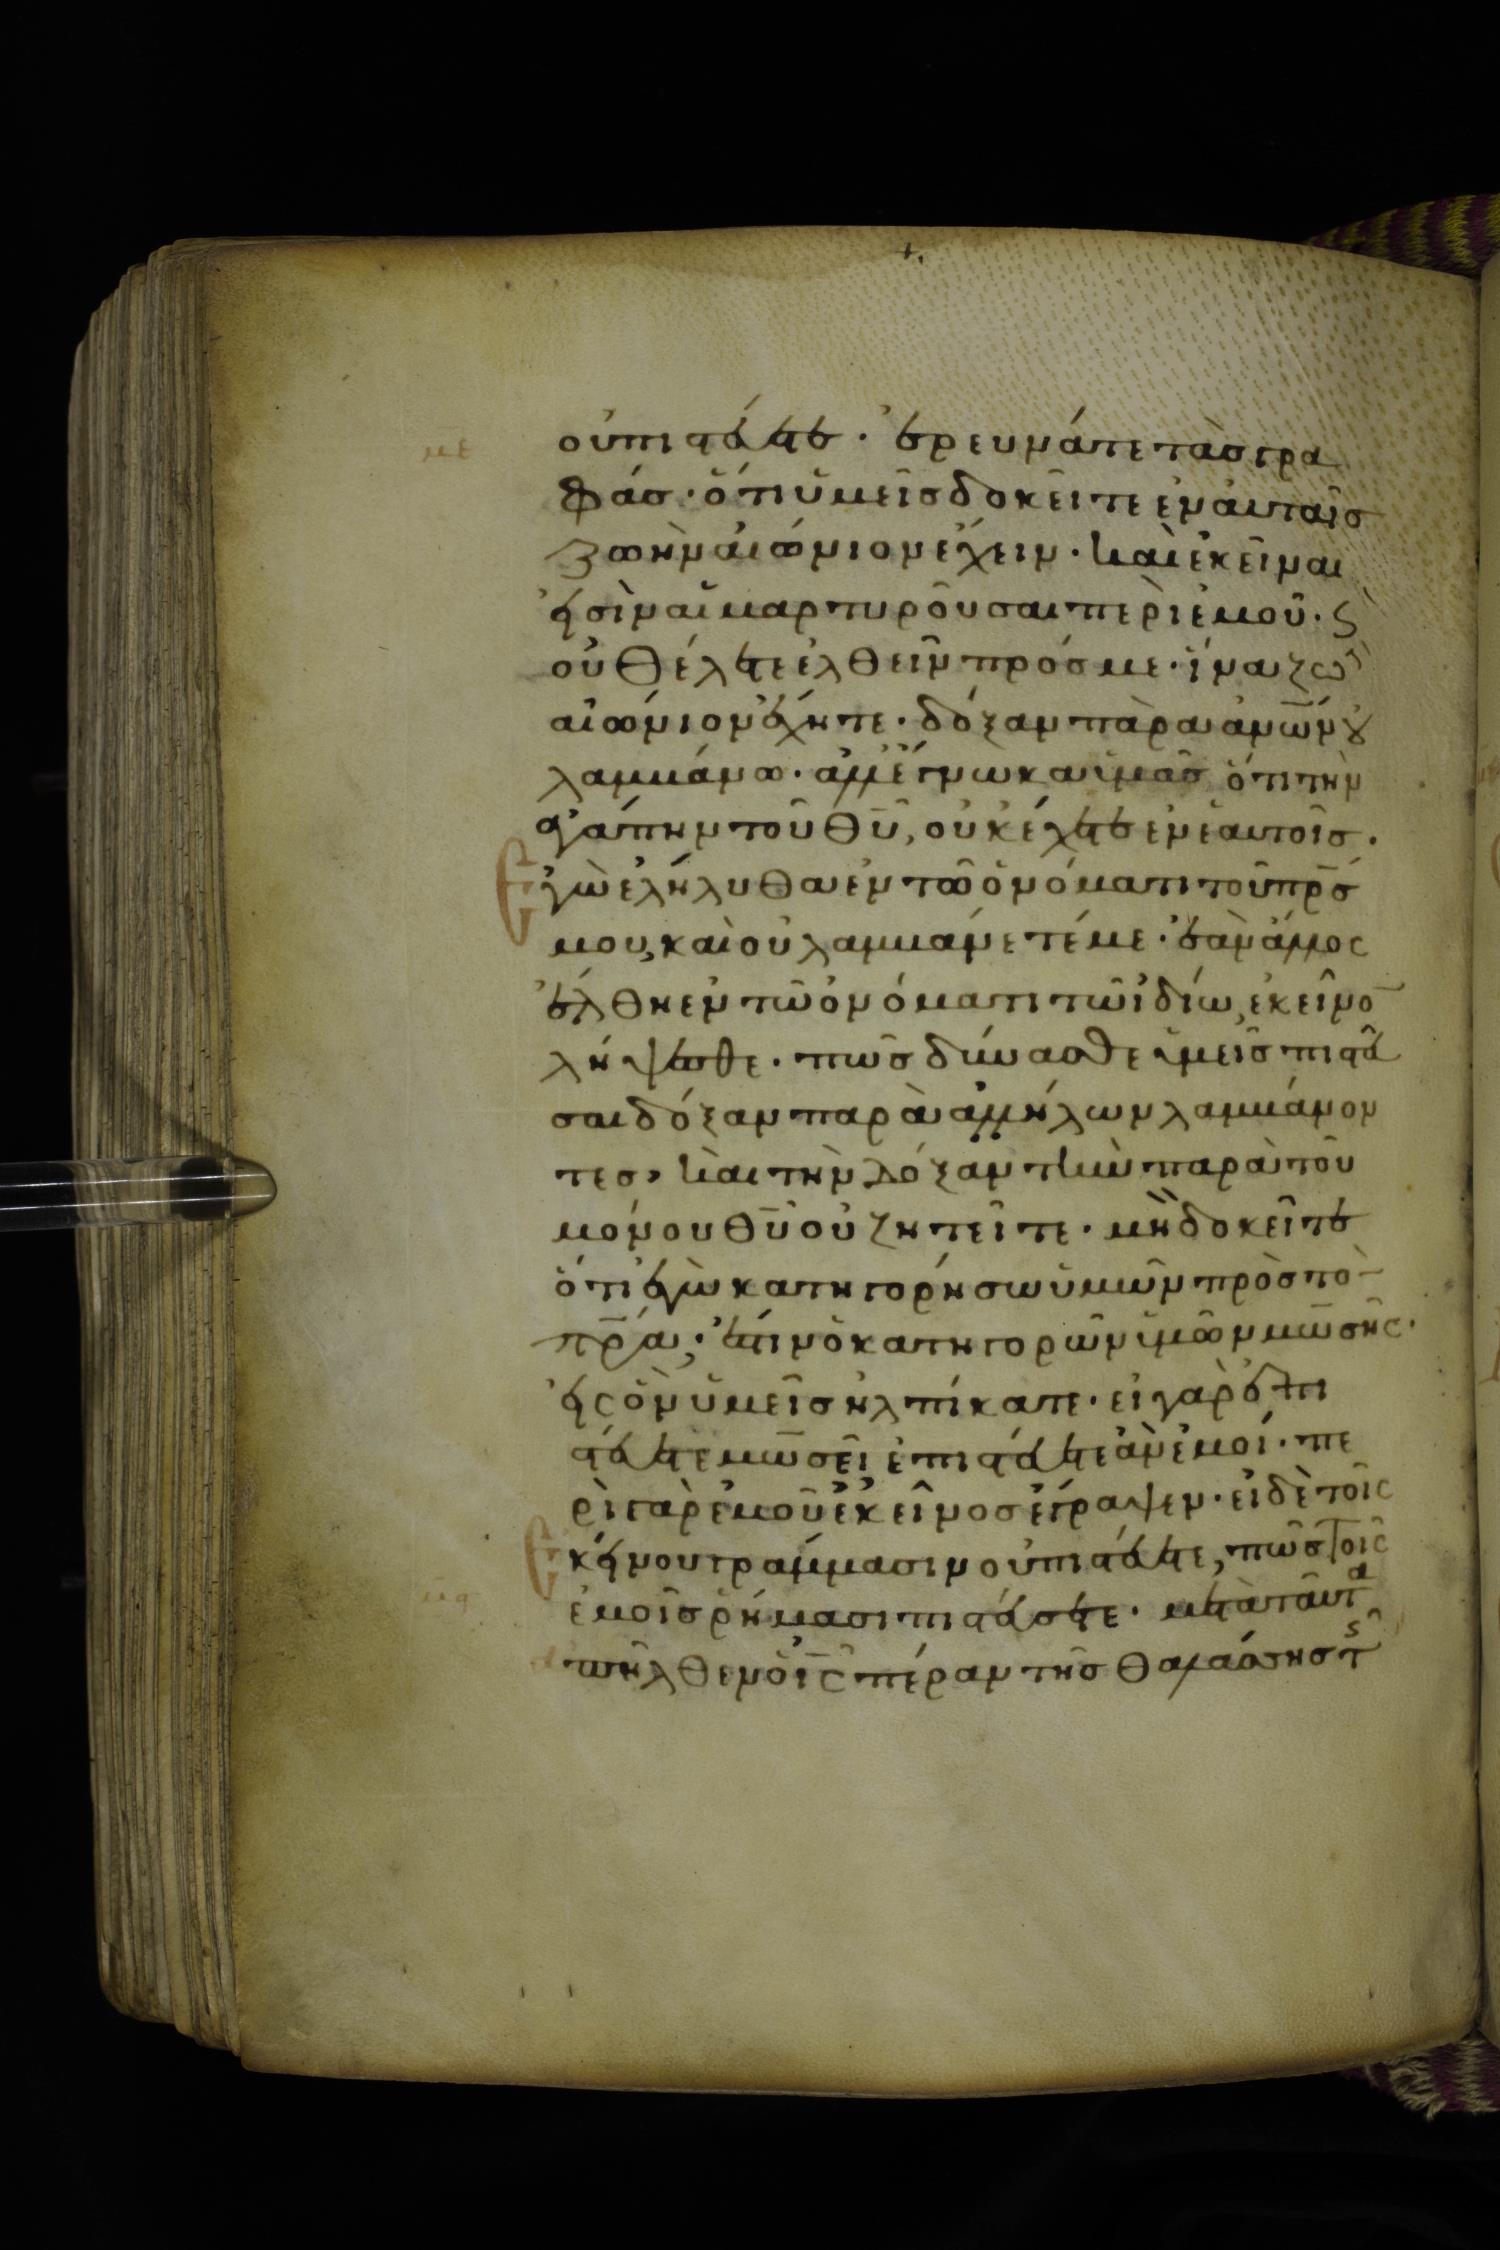 με
οὐ πιστεύετε· ἐρευνᾶτε τὰς γρα
φάς· ὅτι ὑμεῖς δοκεῖτε ἐν αὐταῖς
ζωὴν αἰώνιον ἔχειν· καὶ ἐκεῖναι
εἰσὶν αἱ μαρτυροῦσαι περὶ ἐμοῦ· ϗ
οὐ θέλετε ἐλθεῖν πρός με· ἵνα ζω
αἰώνιον ἔχητε· δόξαν παρὰ ἀν̅ω̅ν̅ οὐ
λαμβάνω· ἀλλ' ἔγνωκα ὑμᾶς ὅτι τὴν
ἀγάπην τοῦ θ̅υ̅, οὐκ ἔχετε ἐν ἑαυτοῖς.
Ἐγὼ ἐλήλυθα ἐν τῶ ὀνόματι τοῦ π̅ρ̅ς
μου, καὶ οὐ λαμβάνετέ με· ἐὰν ἄλλος
ἔλθη ἐν τῶ ὀνόματι τῶ ἰδίω, ἐκεῖνο
λήψεσθε· πῶς δύνασθε ὑμεῖς πιστεῦ
σαι δόξαν παρὰ ἀλλήλων λαμβάνον
τες, καὶ τὴν δόξαν τὴν παρὰ τοῦ
μόνου θ̅υ̅ οὐ ζητεῖτε· μὴ δοκεῖτε
ὅτι ἐγὼ κατηγορήσω ὑμῶν πρὸς τὸ
π̅ρ̅α̅· ἔστιν ὁ κατηγορῶν ὑμῶν μωσῆς·
εἰς ὃν ὑμεῖς ἠλπίκατε· εἰ γὰρ ἐπι
στεύετε μωσεῖ ἐπιστεύετε ἂν ἐμοί· πε
ρὶ γὰρ ἐμοῦ ἐκεῖνος ἔγραψεν· εἰ δὲ τοῖς
Ἐκείνου γράμμασιν οὐ πιστεύετε, πῶς τοῖς
ἐμοῖς ῥήμασι πιστεύσετε· μετὰ ταῦτα
ἀπῆλθεν ὁ ι̅ς̅ πέραν τῆς θαλάσσης τῆς